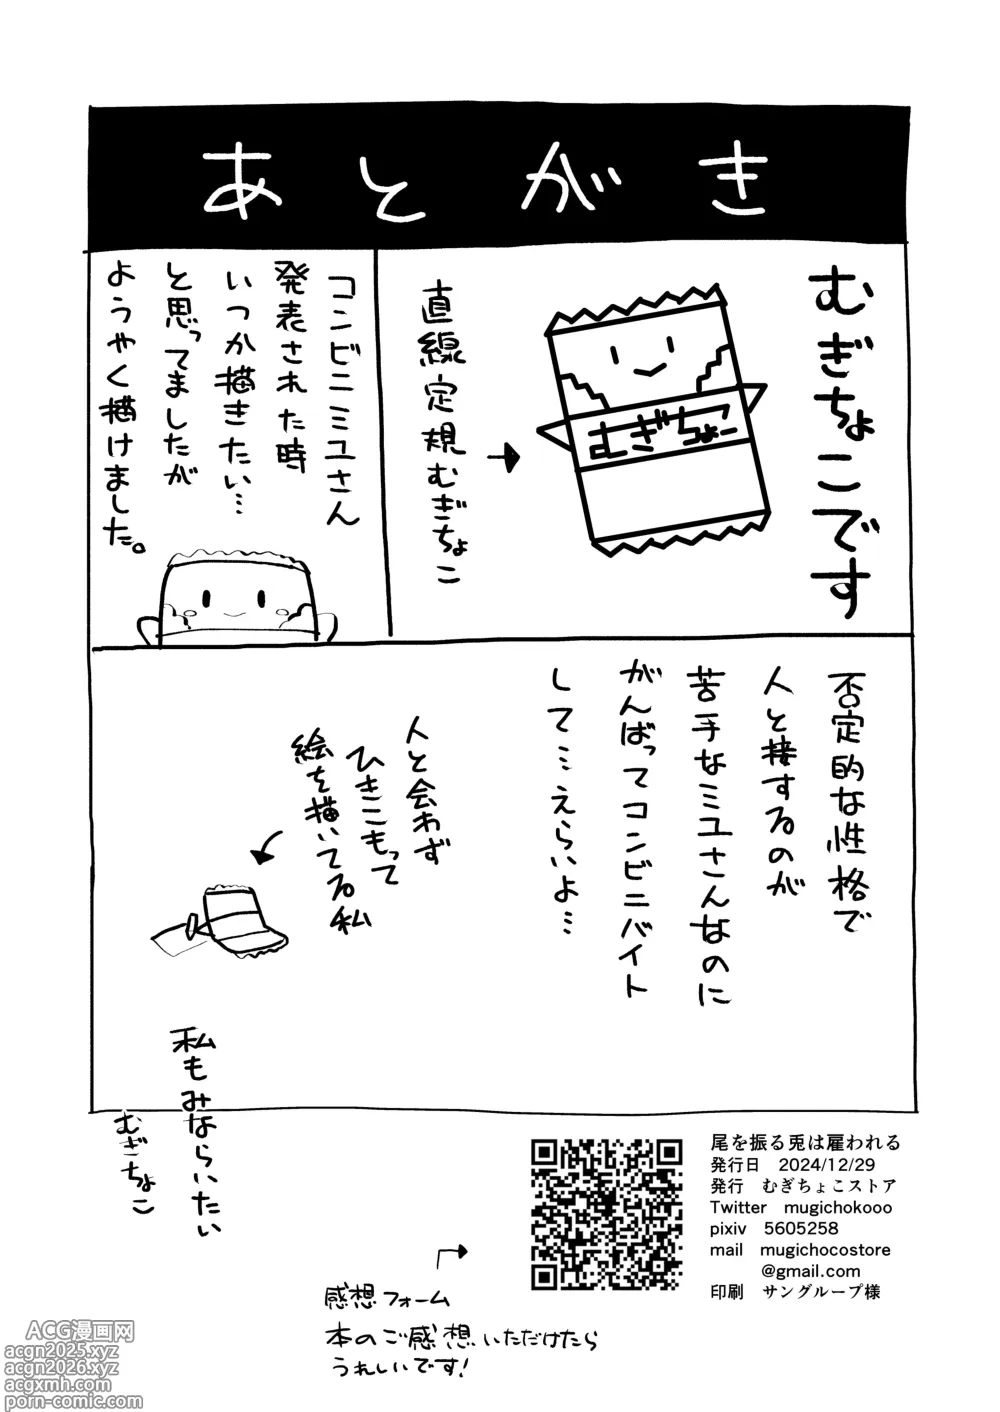 あとがき
むぎちょこです
むぎちょこ
直線定規むぎちょこ
コンビニミユさん
発表された時
いつか描きたい…
と思ってましたが
ようやく描けました。
否定的な性格で
人と接するのが
苦手なミユさんなのに
がんばってコンビニバイト
して…えらいよ…
人と会わず
ひきこもって
絵を描いてる私
私もみならいたい
むぎちょこ
尾を振る兎は雇われる
発行日 2024/12/29
発行 むぎちょこストア
Twitter mugichokooo
pixiv 5605258
mail mugichocostore
@gmail.com
印刷 サングループ様
感想フォーム
本のご感想いただけたら
うれしいです!
ACG漫画网
acgn2025.xyz
acgn2026.xyz
acgxmh.com
porn-comic.com